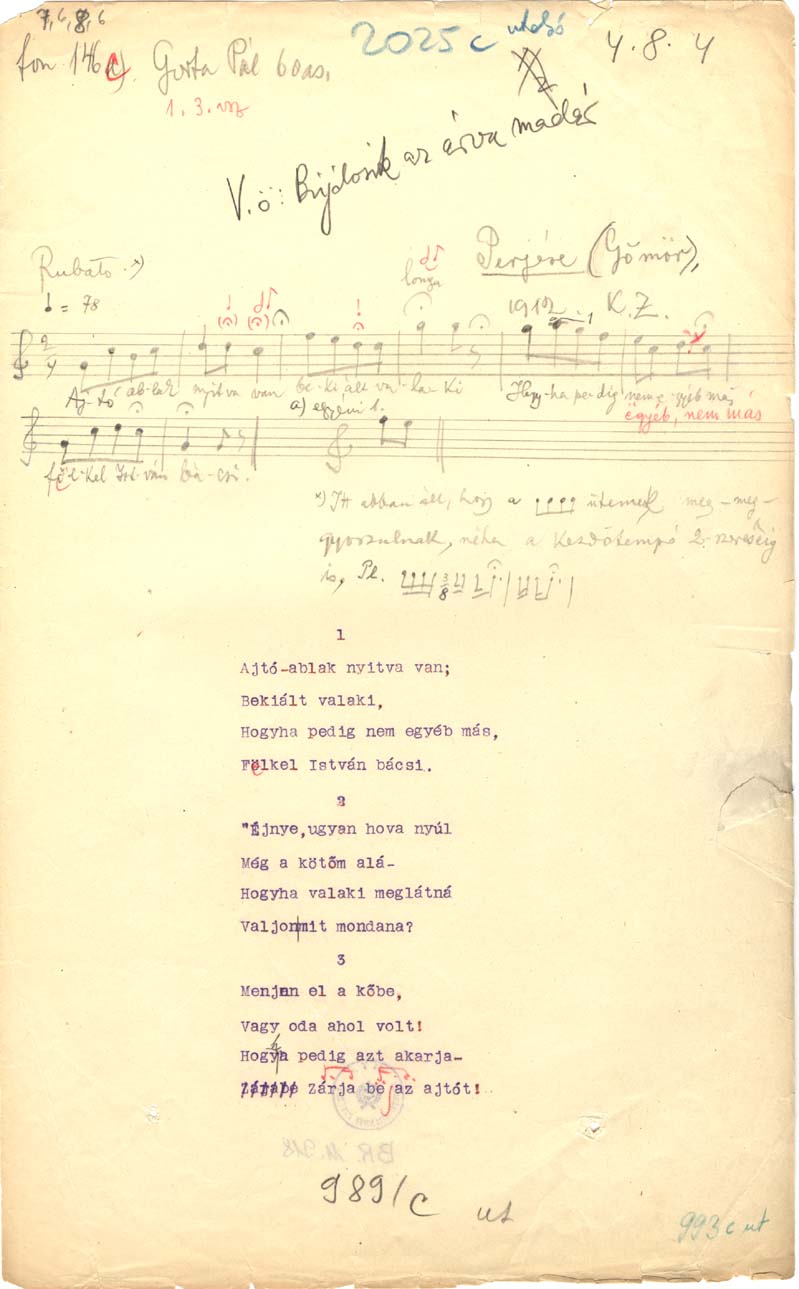 7, 6, 8, 6
2025 c utolsó
4. 8. 4
fon 146 c) Gosta Pál 60 as.
1. 3. vsz
V.ö: Bujdosik az árva madár
Rubato x)
longa
Perjése (Gömör),
♩ = 78
1912 K. Z.
2/4
Aj-tó ab-lak nyitva van be-ki-ált va-la-ki Hogy-ha pe-dig nem e-gyéb más
egyéb, nem más
a) egyéni 1.
föl-kel Ist-ván bá-csi.
x) Itt abban áll, hogy a ütemek meg-meg-
gyorsulnak, néha a kezdőtempó 2-szereséig
is, Pl. 3/8
1
Ajtó-ablak nyitva van;
Bekiált valaki,
Hogyha pedig nem egyéb más,
Fölkel István bácsi.
2
"Éjnye,ugyan hova nyúl
Még a kötőm alá-
Hogyha valaki meglátná
Valjonmit mondana?
3
Menjen el a kőbe,
Vagy oda ahol volt!
Hogyh pedig azt akarja-
Zárja be az ajtót!
989/c ut
993 c ut